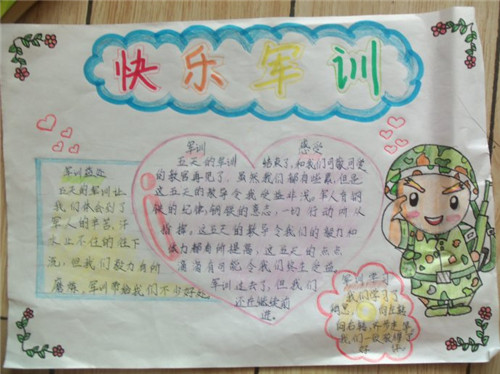 快乐军训
军训益处
五天的军训让
我们体会到了
军人的辛苦，汗
水止不住的往下
流，但我们毅力有所
磨炼，军训带给我们不少好处
军训 感受
五天的军训 结束了，和我们可敬可爱
的教官再见了，虽然我们都有哑鼠，但是
这五天的教导令我受益非浅，军人有钢
铁的纪律，钢铁的意志，一切行动听从
指挥，这五天的教导令我们的毅力和
体力都有所提高，这五天的点点
滴滴有可能令我们终生受益
军训过去了，但我们
还在继续前
进。
军训学习
我们学习了
向左转
向右转，齐步走等
我们一致获得了
好